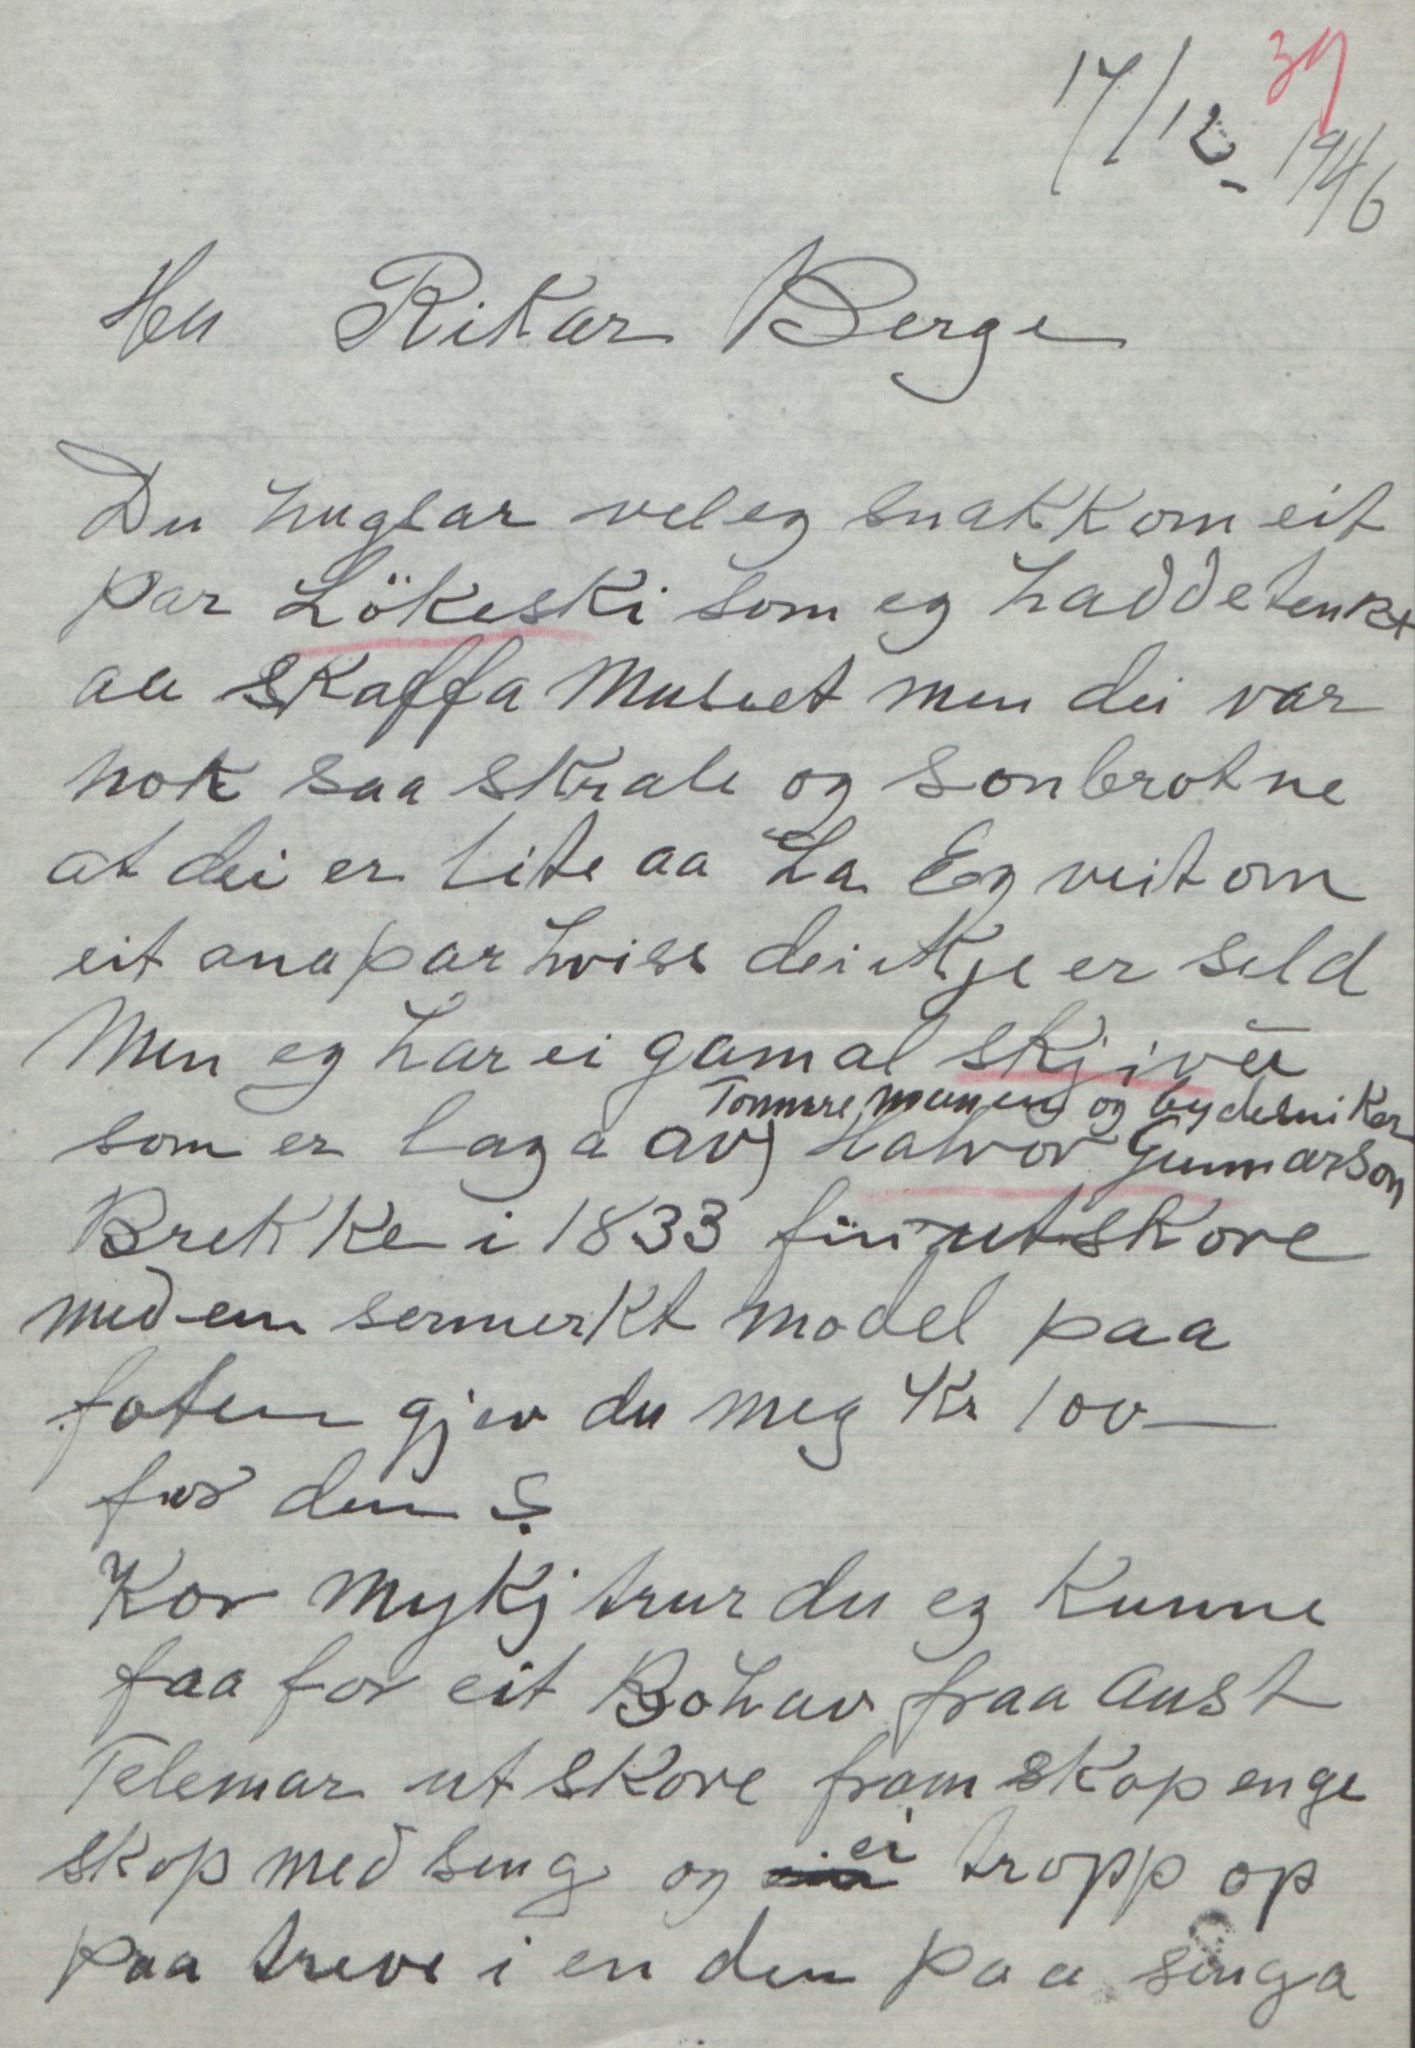 39
17/12 - 1946
Herr Rikar Berge
Du hugsar vel eg snakk om eit
par Lökeski som eg hadde tenkt
aa skaffa Museet men dei var
nok saa skrale og sonbrotne
at dei er lite aa ha Eg veit om
eit ana par hviss dei ikje er seld
Men eg har ei gamal skjive
som er laga av Tømmremannen og bydesniker Halvor Gunnarson
Brekke i 1833 fin utskore
med en sermerkt model paa
foten gjev du meg Kr 100 —
for den ?
Kor mykj trur du eg kunne
faa for eit Bohav fraa Aust
Telemar utskore framskop enge
skop med seng og ei tropp op
paa treve i enden paa senga